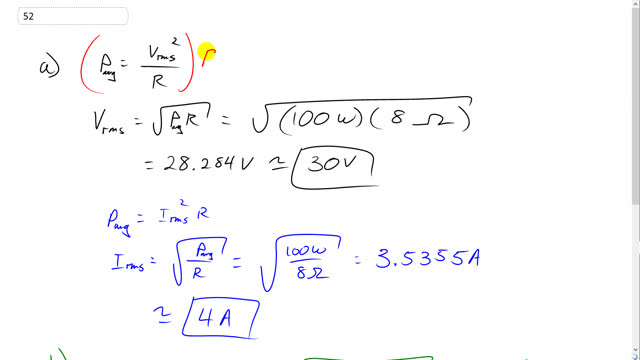 52
a) (P_avg = V_rms² / R) R
V_rms = √(P_avg R) = √((100 W)(8 Ω))
= 28.284 V ≃ 30V
P_avg = I_rms² R
I_rms = √(P_avg / R) = √(100W / 8Ω) = 3.5355A
≃ 4 A